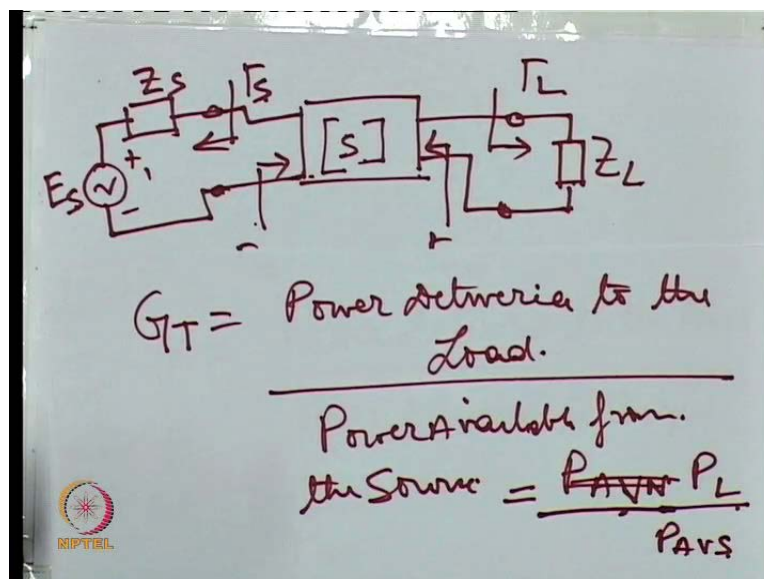 Zs Γs ΓL
Es + - [S] ZL
GT = Power Delivered to the
Load.
Power Available from
the Source = PAVN PL
PAVS
NPTEL